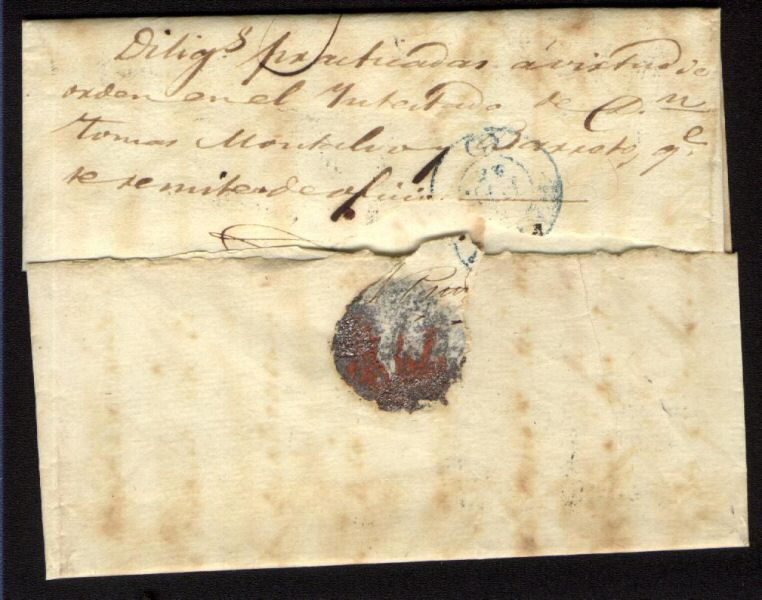 Dilig.s practicadas á virtud de
orden en el Intestado de D.n
Tomas Montelio y Barroto, q.e
se remite de oficio